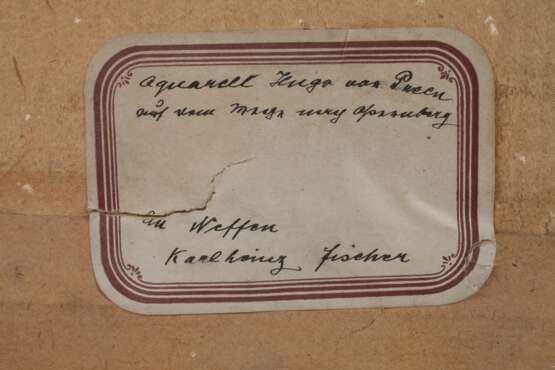 Aquarell Hugo von Preen
auf dem Wege nach
An Neffen
Karlheinz Fischer